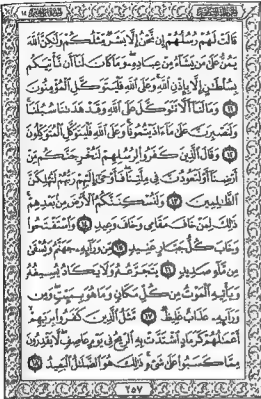 قَالَتْ لَهُمْ رُسُلُهُمْ إِن نَّحْنُ إِلَّا بَشَرٌ مِّثْلُكُمْ وَلَٰكِنَّ ٱللَّهَ
يَمُنُّ عَلَىٰ مَن يَشَآءُ مِنْ عِبَادِهِۦ ۖ وَمَا كَانَ لَنَآ أَن نَّأْتِيَكُم
بِسُلْطَٰنٍ إِلَّا بِإِذْنِ ٱللَّهِ ۚ وَعَلَى ٱللَّهِ فَلْيَتَوَكَّلِ ٱلْمُؤْمِنُونَ
١١ وَمَا لَنَآ أَلَّا نَتَوَكَّلَ عَلَى ٱللَّهِ وَقَدْ هَدَىٰنَا سُبُلَنَا ۚ
وَلَنَصْبِرَنَّ عَلَىٰ مَآ ءَاذَيْتُمُونَا ۚ وَعَلَى ٱللَّهِ فَلْيَتَوَكَّلِ ٱلْمُتَوَكِّلُونَ
١٢ وَقَالَ ٱلَّذِينَ كَفَرُوا۟ لِرُسُلِهِمْ لَنُخْرِجَنَّكُم مِّنْ
أَرْضِنَآ أَوْ لَتَعُودُنَّ فِى مِلَّتِنَا ۖ فَأَوْحَىٰٓ إِلَيْهِمْ رَبُّهُمْ لَنُهْلِكَنَّ
ٱلظَّٰلِمِينَ ١٣ وَلَنُسْكِنَنَّكُمُ ٱلْأَرْضَ مِنۢ بَعْدِهِمْ ۚ
ذَٰلِكَ لِمَنْ خَافَ مَقَامِى وَخَافَ وَعِيدِ ١٤ وَٱسْتَفْتَحُوا۟
وَخَابَ كُلُّ جَبَّارٍ عَنِيدٍ ١٥ مِّن وَرَآئِهِۦ جَهَنَّمُ وَيُسْقَىٰ
مِن مَّآءٍ صَدِيدٍ ١٦ يَتَجَرَّعُهُۥ وَلَا يَكَادُ يُسِيغُهُۥ
وَيَأْتِيهِ ٱلْمَوْتُ مِن كُلِّ مَكَانٍ وَمَا هُوَ بِمَيِّتٍ ۖ وَمِن
وَرَآئِهِۦ عَذَابٌ غَلِيظٌ ١٧ مَّثَلُ ٱلَّذِينَ كَفَرُوا۟ بِرَبِّهِمْ ۖ
أَعْمَٰلُهُمْ كَرَمَادٍ ٱشْتَدَّتْ بِهِ ٱلرِّيحُ فِى يَوْمٍ عَاصِفٍ ۖ لَّا يَقْدِرُونَ
مِمَّا كَسَبُوا۟ عَلَىٰ شَىْءٍ ۚ ذَٰلِكَ هُوَ ٱلضَّلَٰلُ ٱلْبَعِيدُ ١٨
٢٥٧